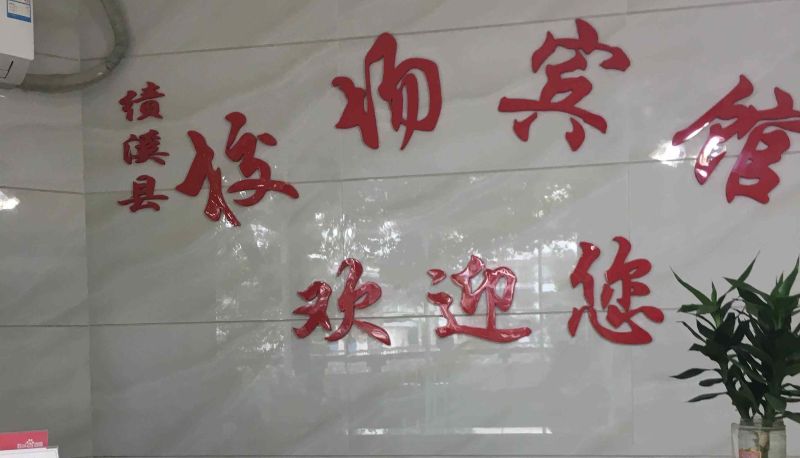 绩溪县
俊杨宾馆
欢迎您